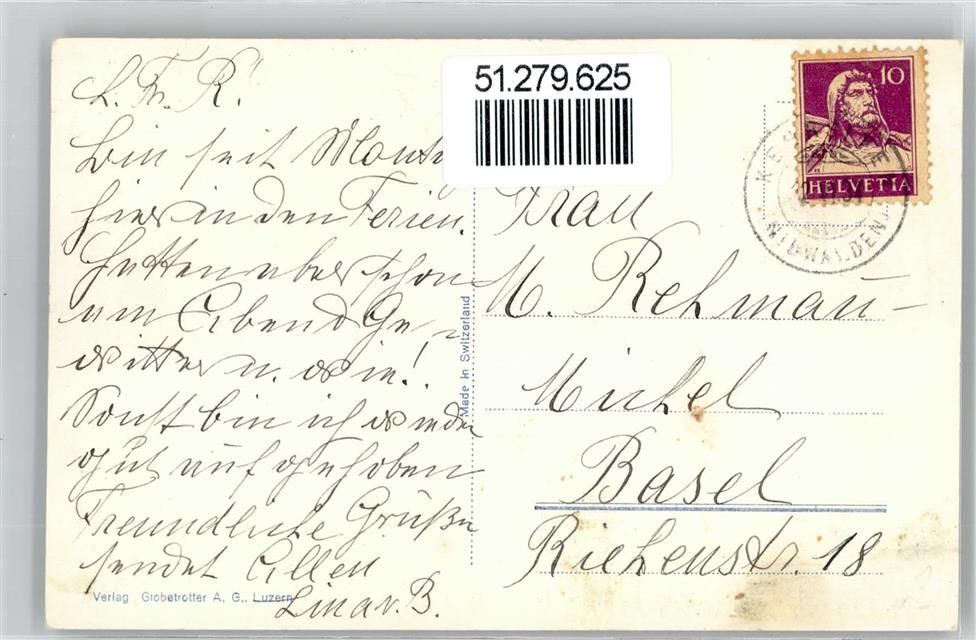 L. Fr. R.!
Bin seit Montag
hier in den Ferien.
Hatten aber schon
am Abend Ge-
witter u. wie!
Sonst bin ich wieder
gut aufgehoben
Freundliche Grüße
sendet Allen
Lina v. B.
Verlag Globetrotter A. G., Luzern
Made in Switzerland
51.279.625
10
HELVETIA
NIDWALDEN
Frau
M. Rehmau-
Michel
Basel
Riehenstr. 18